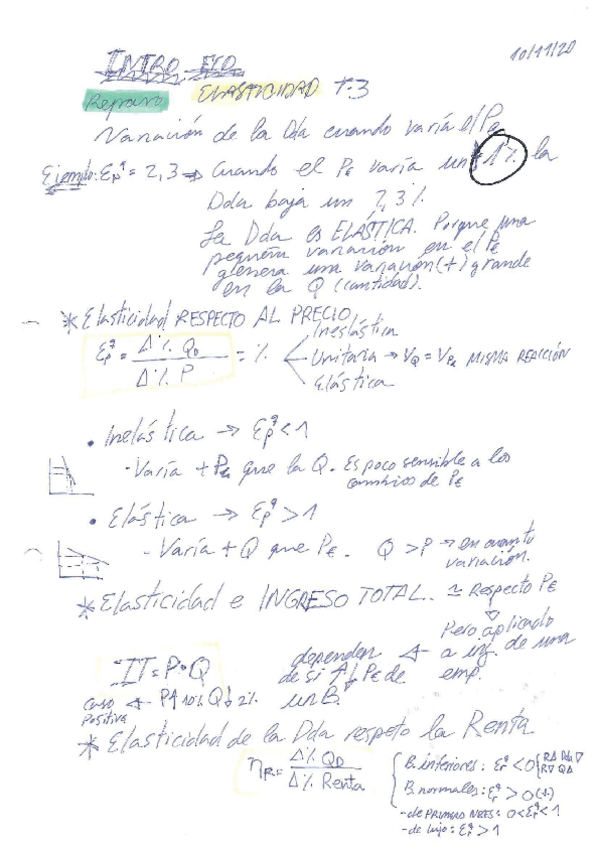 INTRO ECO
10/11/20
Repaso ELASTICIDAD T.3
Variación de la Dda cuando varía el PE
Ejemplo: Eqp = 2,3 ⇒ Cuando el PE varía un 1% la
Dda baja un 2,3%.
La Dda es ELÁSTICA. Porque una
pequeña variación en el PE
genera una variación (+) grande
en la Q (cantidad).
* Elasticidad RESPECTO AL PRECIO
Eqp = Δ% QD / Δ% P = %
Ineslástica
Unitaria → VQ = VPE MISMA REACCIÓN
Elástica
• Inelástica → Eqp < 1
- Varía + PE que la Q. Es poco sensible a los
cambios de PE
• Elástica → Eqp > 1
- Varía + Q que PE. Q > P → en cuanto
variación.
* Elasticidad e INGRESO TOTAL. ≃ Respecto PE
Pero aplicado
a ing. de una
emp.
IT = P · Q
dependen
de si ↑↓ PE de
un B.
caso P↑ 10% Q↓ 2%
positiva
* Elasticidad de la Dda respeto la Renta
ηR = Δ% QD / Δ% Renta
B. inferiores: Eqr < 0 { RΔ Dda ∇
R∇ QΔ
B. normales: Eqr > 0 (+)
- de PRIMERA NECES: 0 < Eqr < 1
- de lujo: Eqr > 1